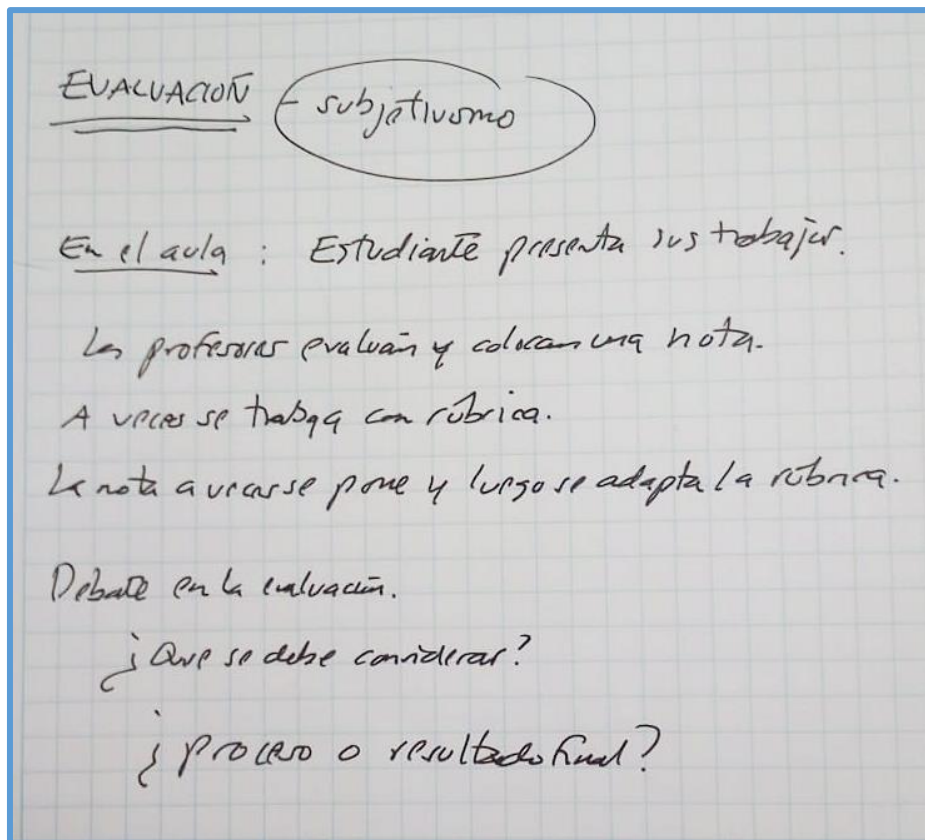 EVALUACIÓN - subjetivismo
En el aula : Estudiante presenta sus trabajos.
Los profesores evaluán y colocan una nota.
A veces se trabaja con rúbrica.
La nota a veces se pone y luego se adapta la rúbrica.
Debate en la evaluación.
¿Que se debe considerar?
¿Proceso o resultado final?